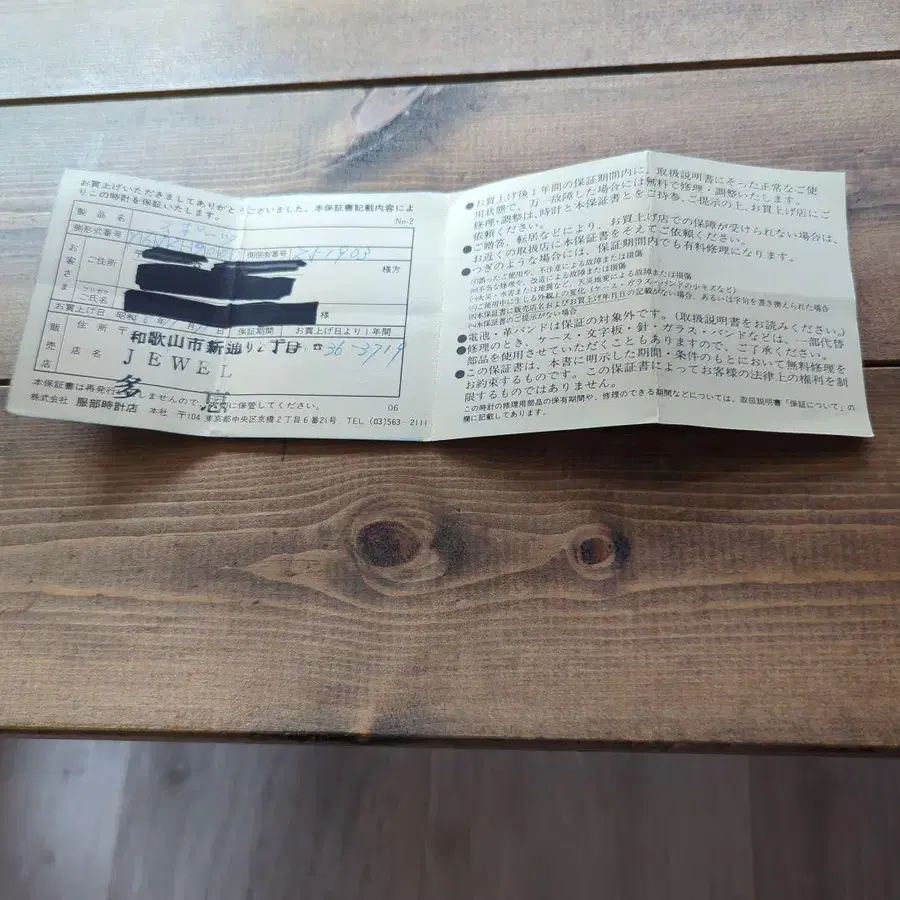 お買上げいただきましてありがとうございました。本保証書記載内容によ
りこの時計を保証いたします。
No.2
製品名
側形式番号
側個有番号 751903
お客さま
ご住所
様方
フリガナ
ご氏名
様
お買上げ日 昭和
保証期間 お買上げ日より1年間
販売店
住所 〒
和歌山市新通り2丁目 ☎ 36-3719
店名
JEWEL
本保証書は再発行しませんので、に保管してください。
06
株式会社 服部時計店 本社 〒104 東京都中央区京橋2丁目6番21号 TEL (03)563-2111
●お買上げ後1年間の保証期間内に、取扱説明書にそった正常なご使
用状態で、万一故障した場合には無料で修理・調整いたします。
修理・調整は、時計と本保証書とをご持参、ご提示の上、お買上げ店にご
依頼ください。
●ご贈答、転居などにより、お買上げ店での保障が受けられない場合は、
お近くの取扱店に本保証書をそえてご依頼ください。
●つぎのような場合には、保証期間内でも有料修理になります。
(イ)誤ったご使用や、不注意による故障または損傷
(ロ)不当な修理や、改造による故障または損傷
(ハ)火災・水害または地震など、天災地変による故障または損傷
(ニ)ご使用中に生じる外観上の変化(ケース・ガラス・バンドの小キズなど)
(ホ)保証書に販売店名およびお買上げ年月日の記載がない場合、あるいは字句を書き換えられた場合
(ヘ)本保証書のご提示がない場合
●電池・革バンドは保証の対象外です。(取扱説明書をお読みください。)
●修理のとき、ケース・文字板・針・ガラス・バンドなどは、一部代替
部品を使用させていただくこともありますので、ご了承ください。
●この保証書は、本書に明示した期間・条件のもとにおいて無料修理を
お約束するものです。この保証書によってお客様の法律上の権利を制
限するものではありません。
この時計の修理用部品の保有期間や、修理のできる期間などについては、取扱説明書「保証について」の
欄に記載してあります。